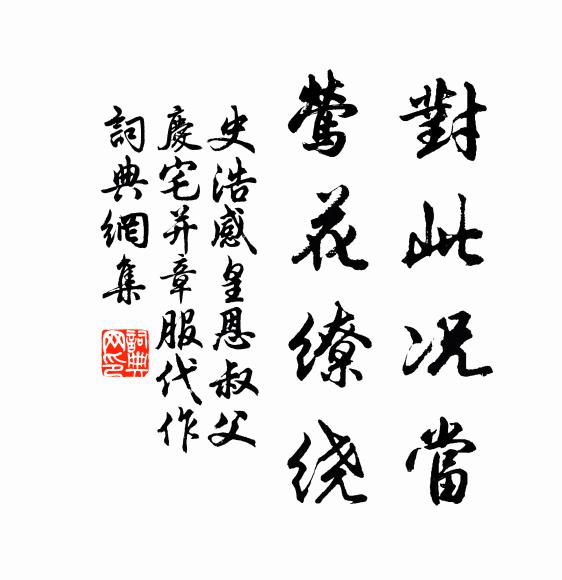 對此况當
莺花缭绕
史浩感皇恩叔父
慶宅并章服代作
詞典網集
詞典
网印